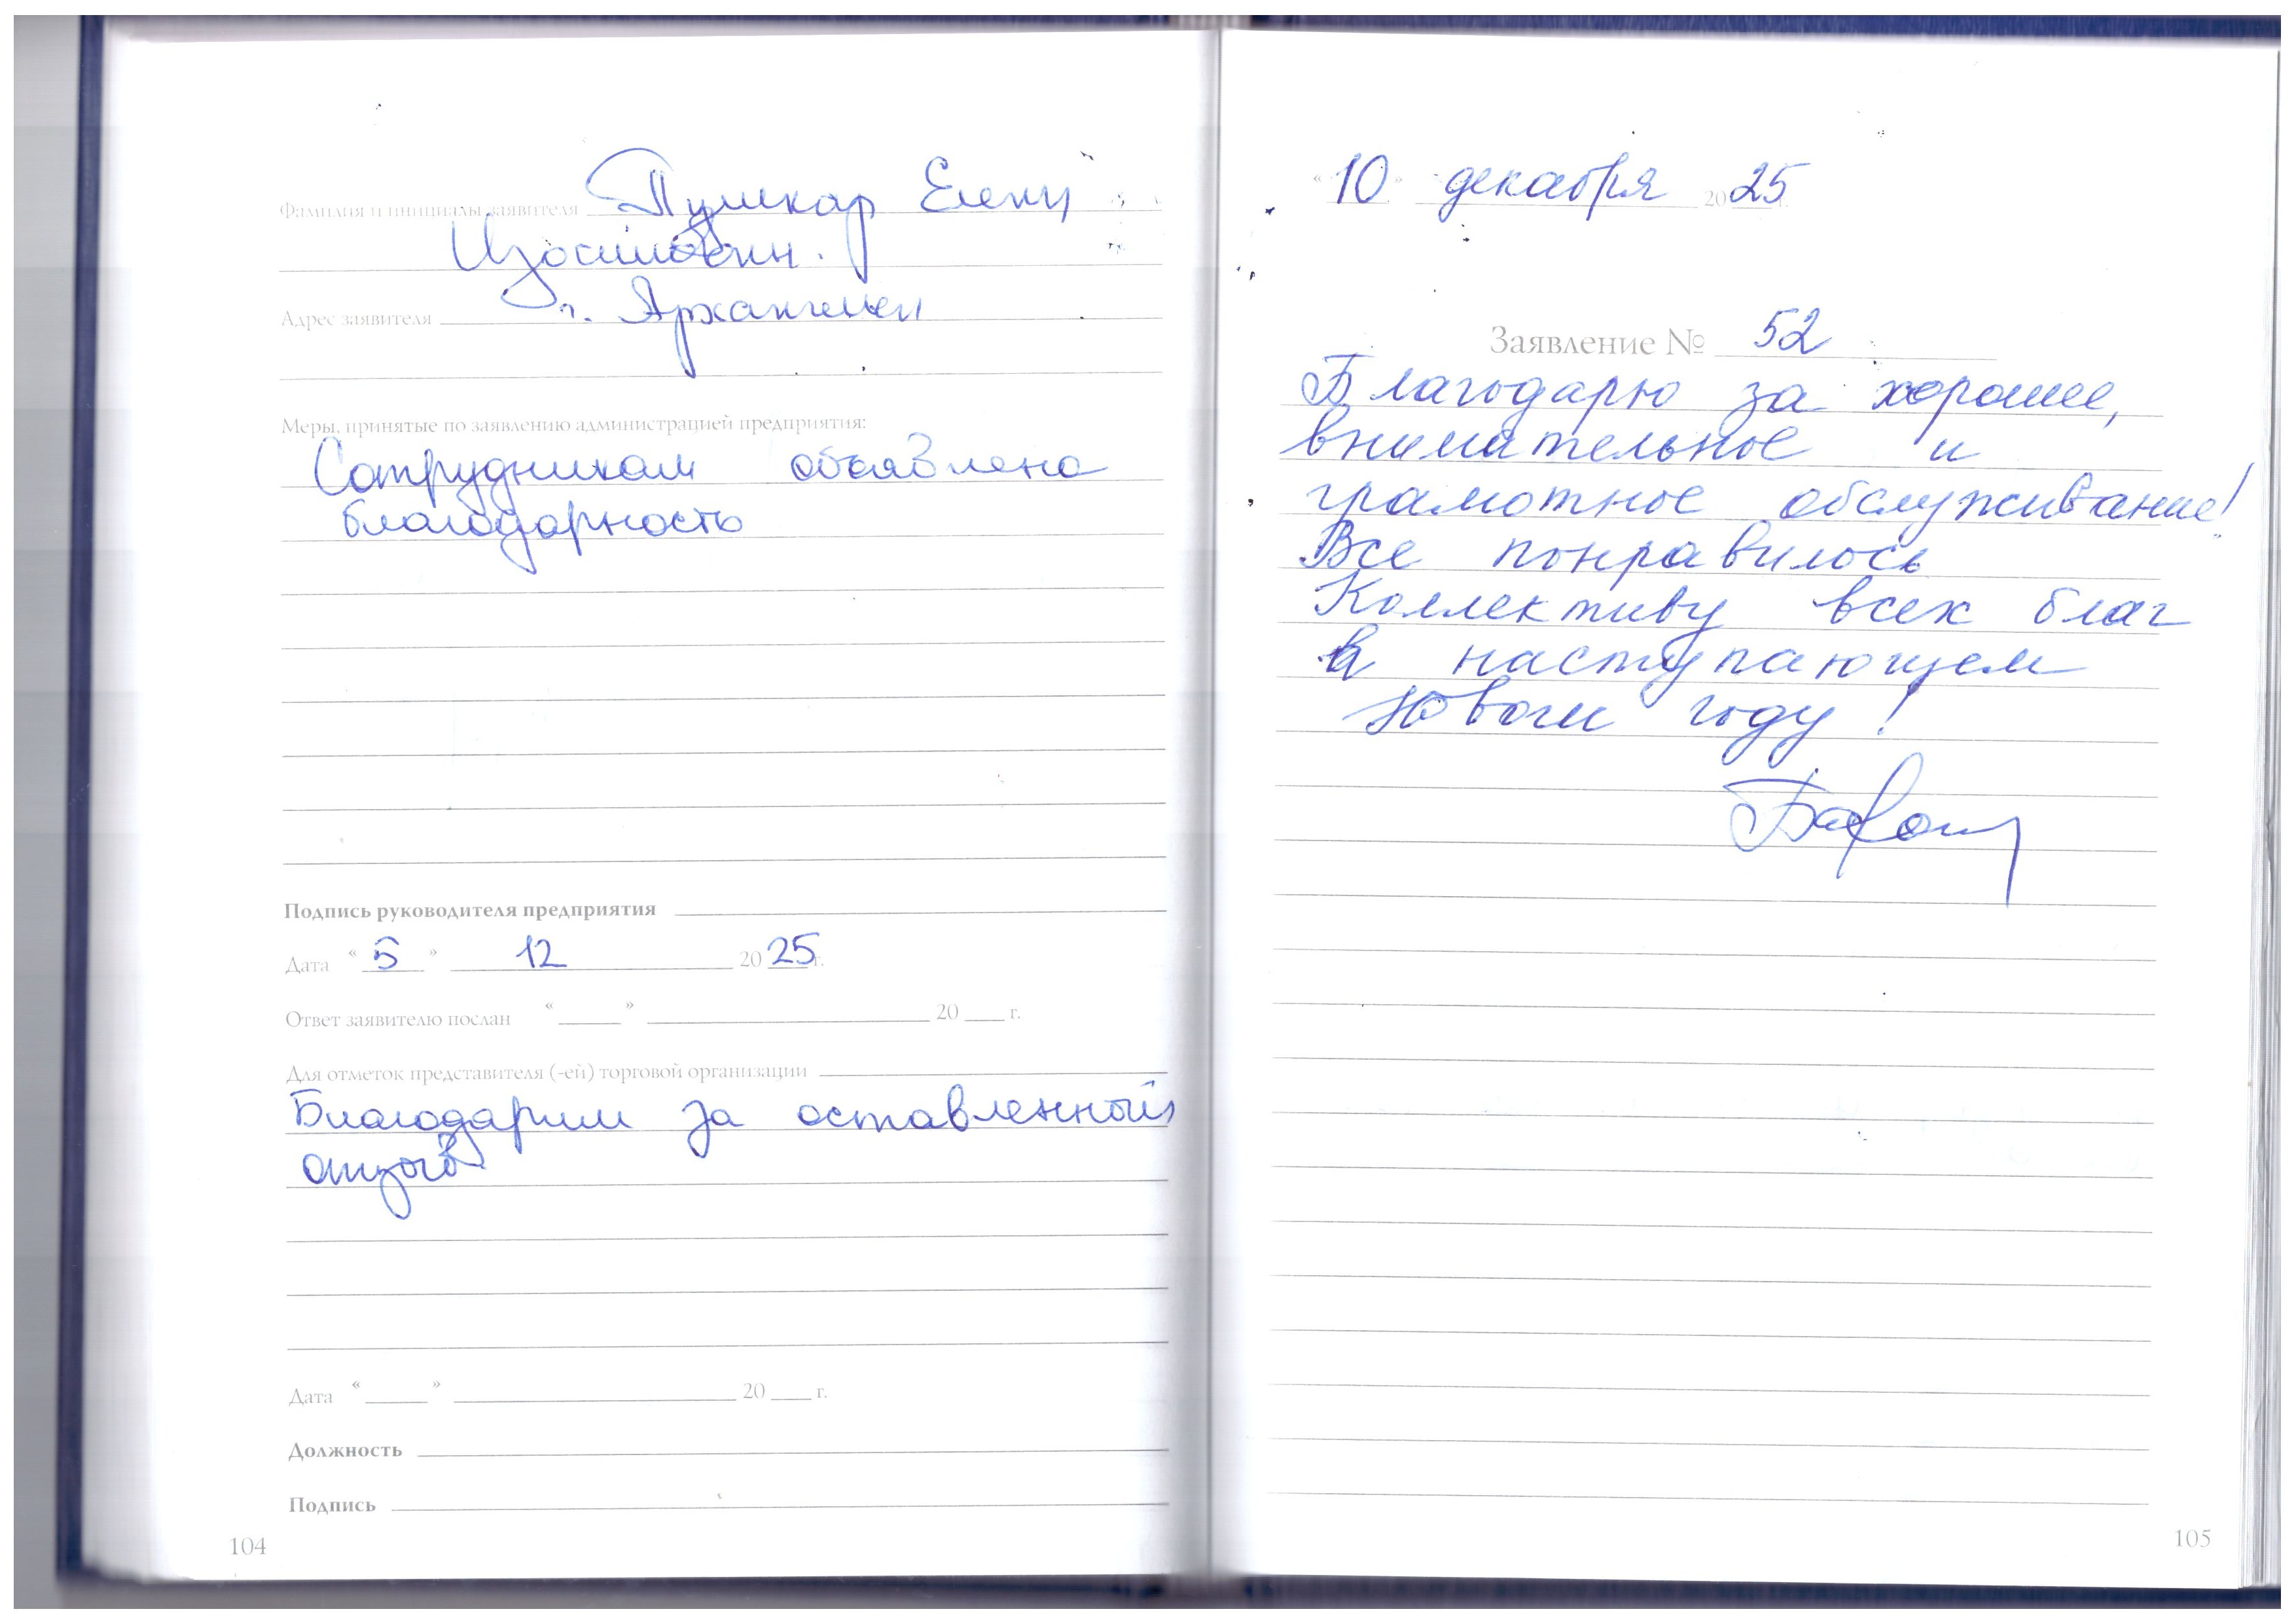 Фамилия и инициалы заявителя Пушкар Елена
Адрес заявителя г. Архангельск
Меры, принятые по заявлению администрацией предприятия:
Сотрудникам объявлена
благодарность
Подпись руководителя предприятия
Дата « 5 » 12 20 25 г.
Ответ заявителю послан « » 20 г.
Для отметок представителя (-ей) торговой организации
Благодарим за оставленный
отзыв
Дата « » 20 г.
Должность
Подпись
104
« 10 » декабря 20 25 г.
Заявление № 52
Благодарю за хорошее,
внимательное и
грамотное обслуживание!
Все понравилось
Коллективу всех благ
в наступающем
Новом году!
105